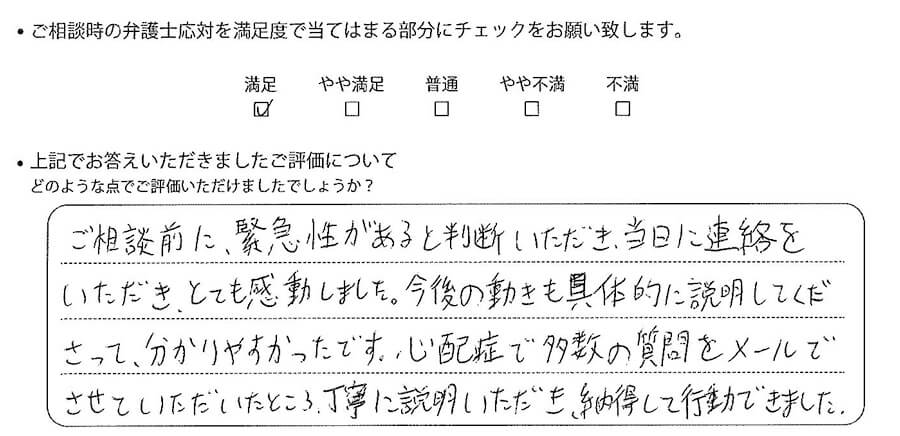 • ご相談時の弁護士応対を満足度で当てはまる部分にチェックをお願い致します。
満足 やや満足 普通 やや不満 不満
☑ □ □ □ □
• 上記でお答えいただきましたご評価について
どのような点でご評価いただけましたでしょうか？
ご相談前に、緊急性があると判断いただき、当日に連絡を
いただき、とても感動しました。今後の動きも具体的に説明してくだ
さって、分かりやすかったです。心配症で多数の質問をメールで
させていただいたところ、丁寧に説明いただき、納得して行動できました。